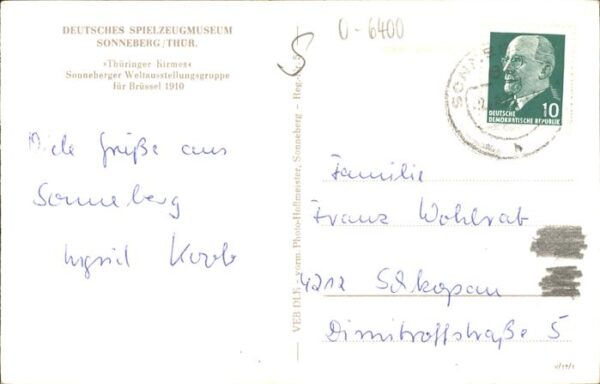 DEUTSCHES SPIELZEUGMUSEUM
SONNEBERG/THÜR.
»Thüringer Kirmes«
Sonneberger Weltausstellungsgruppe
für Brüssel 1910
Viele Grüße aus
Sonneberg
Ingrid
VEB DLK - vorm. Photo-Hoffmeister, Sonneberg - Reg.
O-6400
SONNE
10
DEUTSCHE
DEMOKRATISCHE REPUBLIK
b
Familie
Franz Wohlrab
4212 Schkopau
Dimitroffstraße 5